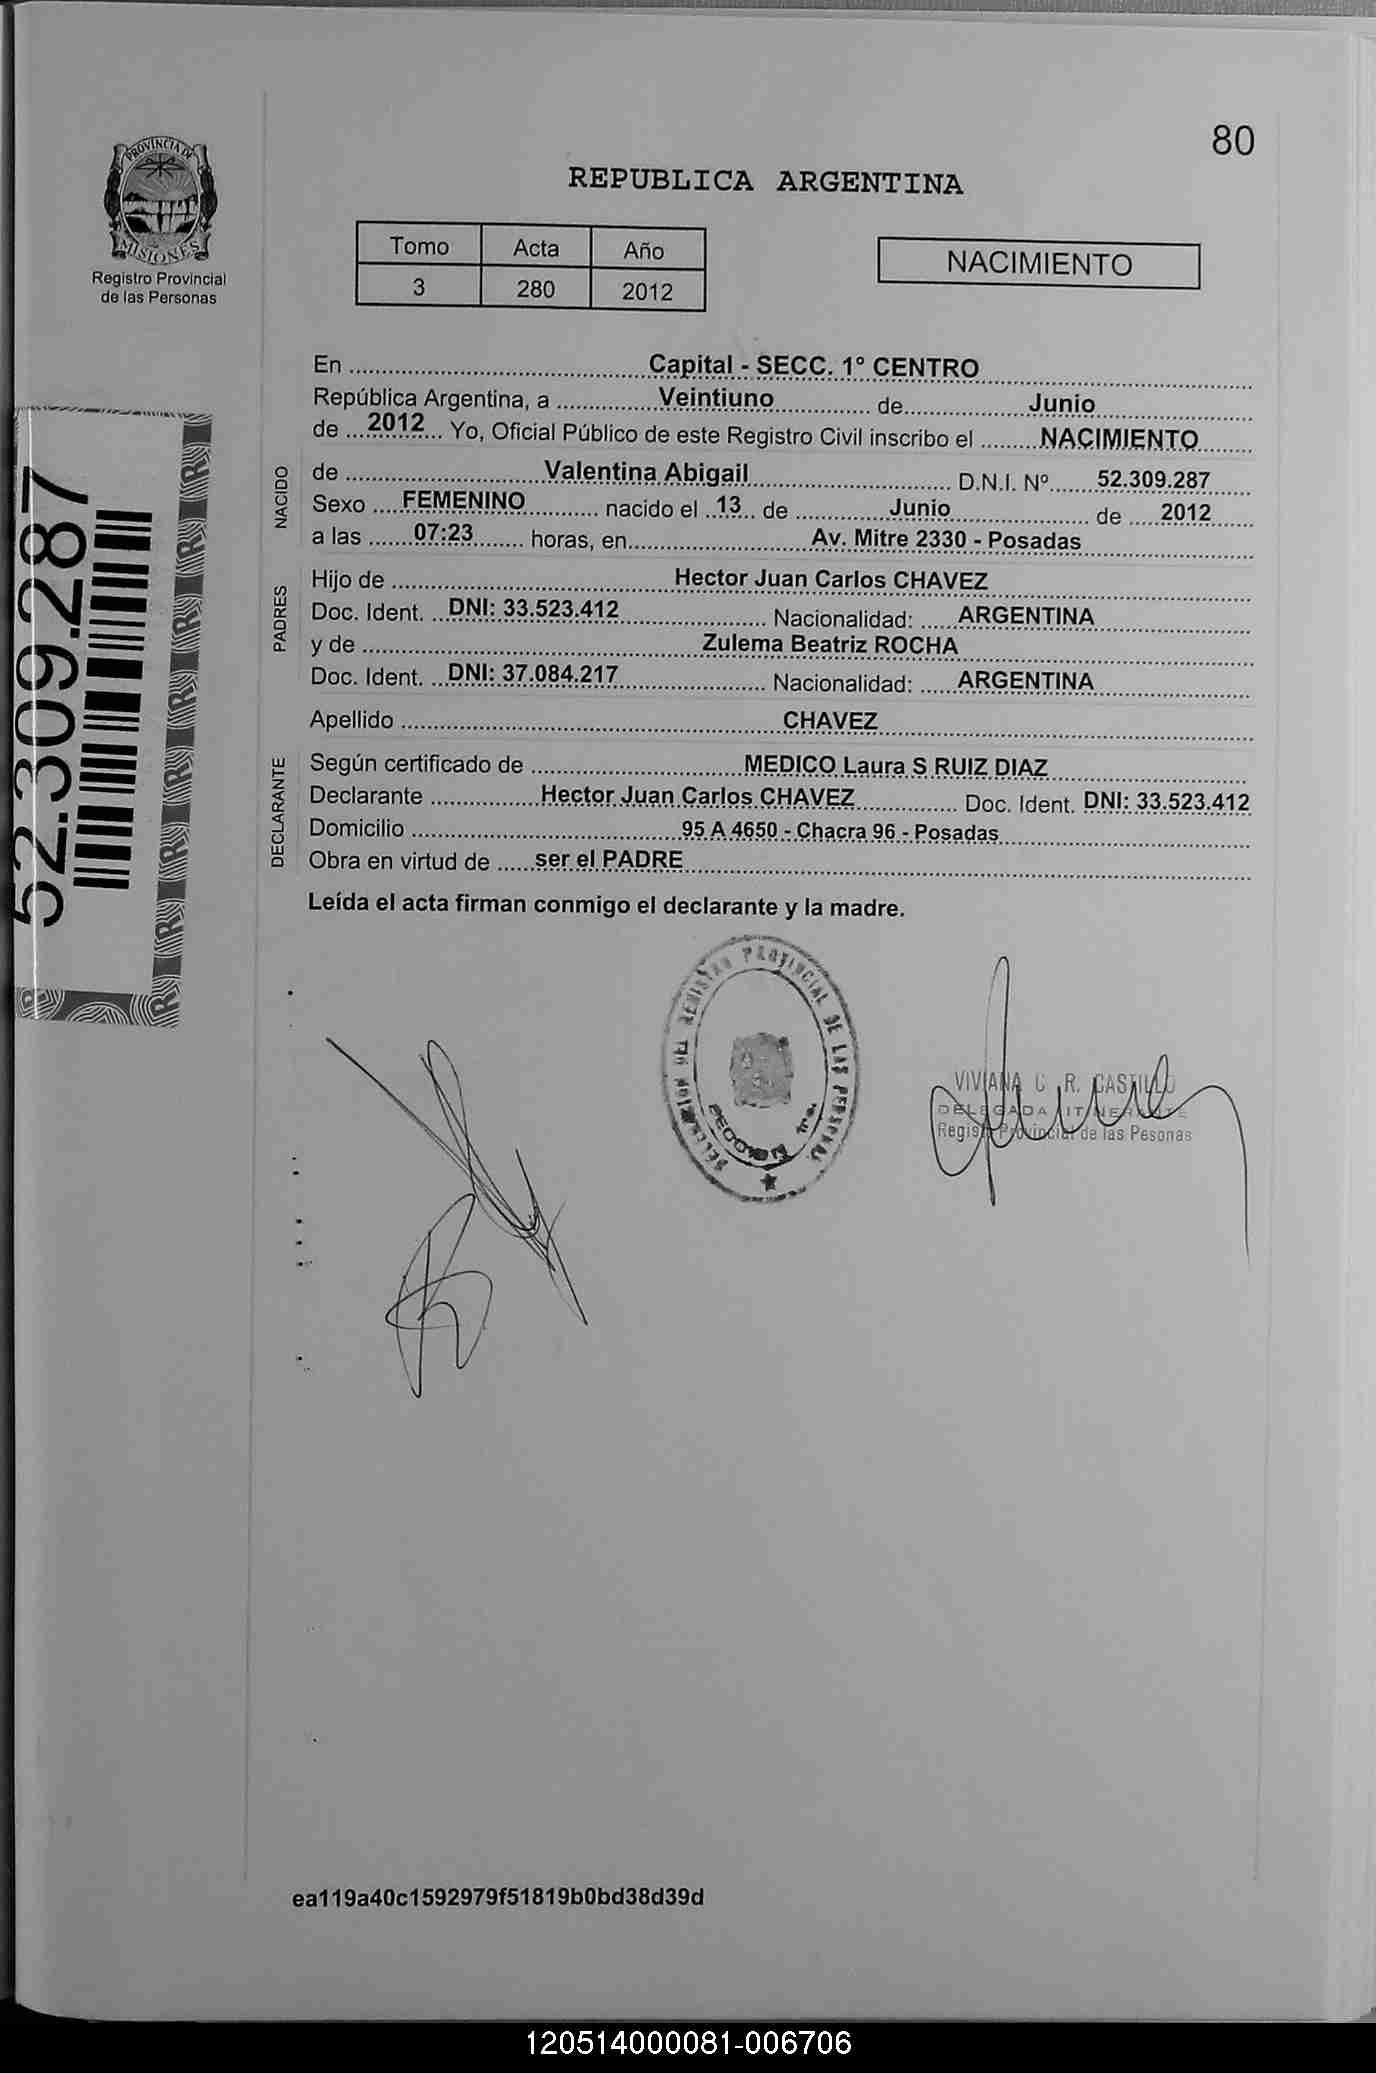 80
PROVINCIA DE
MISIONES
Registro Provincial
de las Personas
REPUBLICA ARGENTINA
Tomo Acta Año
3 280 2012
NACIMIENTO
En Capital - SECC. 1° CENTRO
República Argentina, a Veintiuno de Junio
de 2012 Yo, Oficial Público de este Registro Civil inscribo el NACIMIENTO
NACIDO
de Valentina Abigail D.N.I. Nº 52.309.287
Sexo FEMENINO nacido el 13 de Junio de 2012
a las 07:23 horas, en Av. Mitre 2330 - Posadas
PADRES
Hijo de Hector Juan Carlos CHAVEZ
Doc. Ident. DNI: 33.523.412 Nacionalidad: ARGENTINA
y de Zulema Beatriz ROCHA
Doc. Ident. DNI: 37.084.217 Nacionalidad: ARGENTINA
Apellido CHAVEZ
DECLARANTE
Según certificado de MEDICO Laura S RUIZ DIAZ
Declarante Hector Juan Carlos CHAVEZ Doc. Ident. DNI: 33.523.412
Domicilio 95 A 4650 - Chacra 96 - Posadas
Obra en virtud de ser el PADRE
Leída el acta firman conmigo el declarante y la madre.
52.309.287
DELEGACION DEL REGISTRO PROVINCIAL DE LAS PERSONAS
SECCION 1ra.
VIVIANA C. R. CASTILLO
DELEGADA ITINERANTE
Registro Provincial de las Pesonas
ea119a40c1592979f51819b0bd38d39d
120514000081-006706